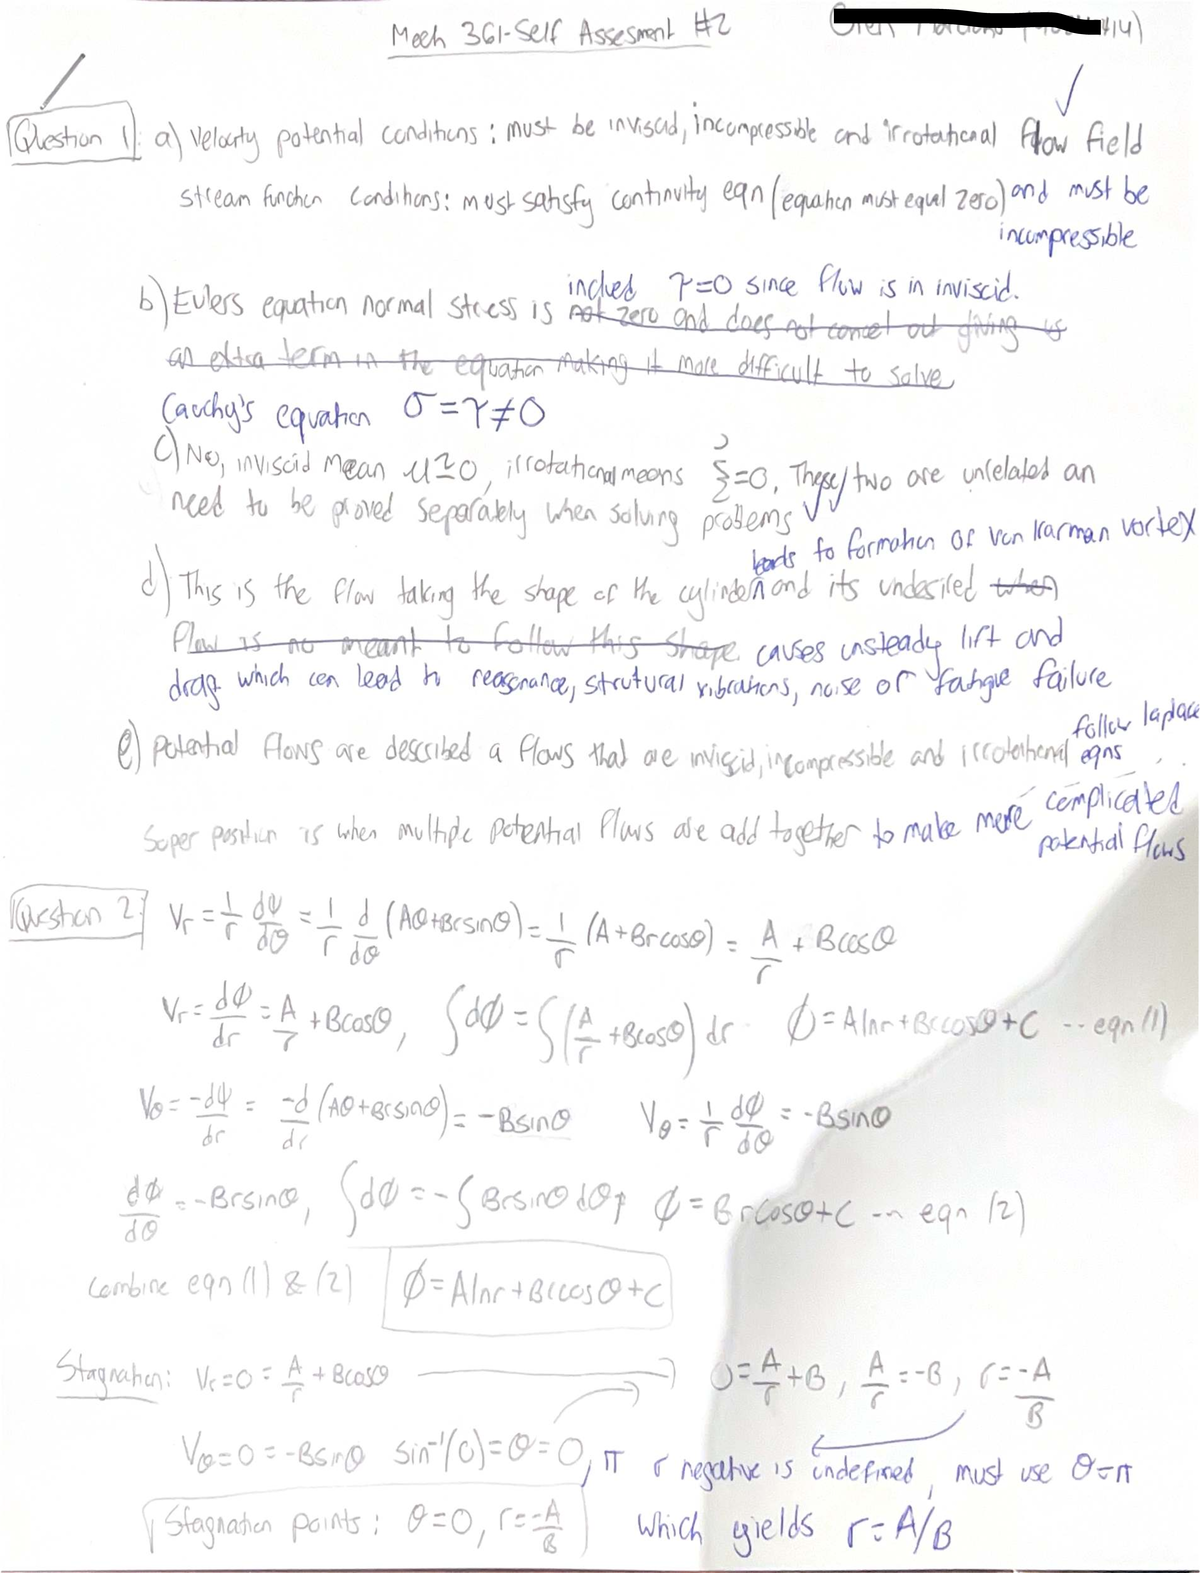 Mech 361-Self Assesment #2
414)
Question 1: a) Velocity potential conditions: must be inviscid, incompressible and irrotational flow field
stream function conditions: must satisfy continuity eqn (equation must equal zero) and must be
incompressible
inclued τ=0 since flow is in inviscid.
b) Eulers equation normal stress is not zero and does not cancel out giving us
an extra term in the equation making it more difficult to solve
Cauchy's equation σ=τ≠0
c) No, inviscid mean μ≈0, irrotational means ξ=0, These two are unrelated an
need to be proved separately when solving problems
leads to formation of von karman vortex
d) This is the flow taking the shape of the cylinder and its undesired when
flow is no meant to follow this shape causes unsteady lift and
drag which can lead to reasonance, strutural vibrations, noise or fatigue failure
follow laplace
e) potential flows are described a flows that are inviscid, incompressible and irrotational eqns
Super position is when multiple potential flows are add together to make more complicated
potential flows
Question 2: Vr = 1/r dψ/dθ = 1/r d/dθ (Aθ+Brsinθ) = 1/r (A+Brcosθ) = A/r + Bcosθ
Vr = dφ/dr = A/r + Bcosθ, ∫dφ = ∫(A/r + Bcosθ) dr φ = Alnr + Brcosθ + C -- eqn (1)
Vθ = -dψ/dr = -d/dr (Aθ+Brsinθ) = -Bsinθ Vθ = 1/r dφ/dθ = -Bsinθ
dφ/dθ = -Brsinθ, ∫dφ = -∫Brsinθ dθ, φ = Brcosθ+C -- eqn (2)
combine eqn (1) & (2) φ = Alnr + Brcosθ + C
Stagnation: Vr=0 = A/r + Bcosθ → 0 = A/r + B, A/r = -B, r = -A/B
Vθ=0 = -Bsinθ sin⁻¹(0) = θ = 0, π r negative is undefined, must use θ=π
Stagnation points: θ=0, r=-A/B which yields r=A/B